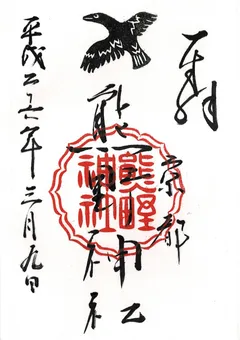 奉拝
京都
熊野神社
熊野神社
平成二十六年三月九日